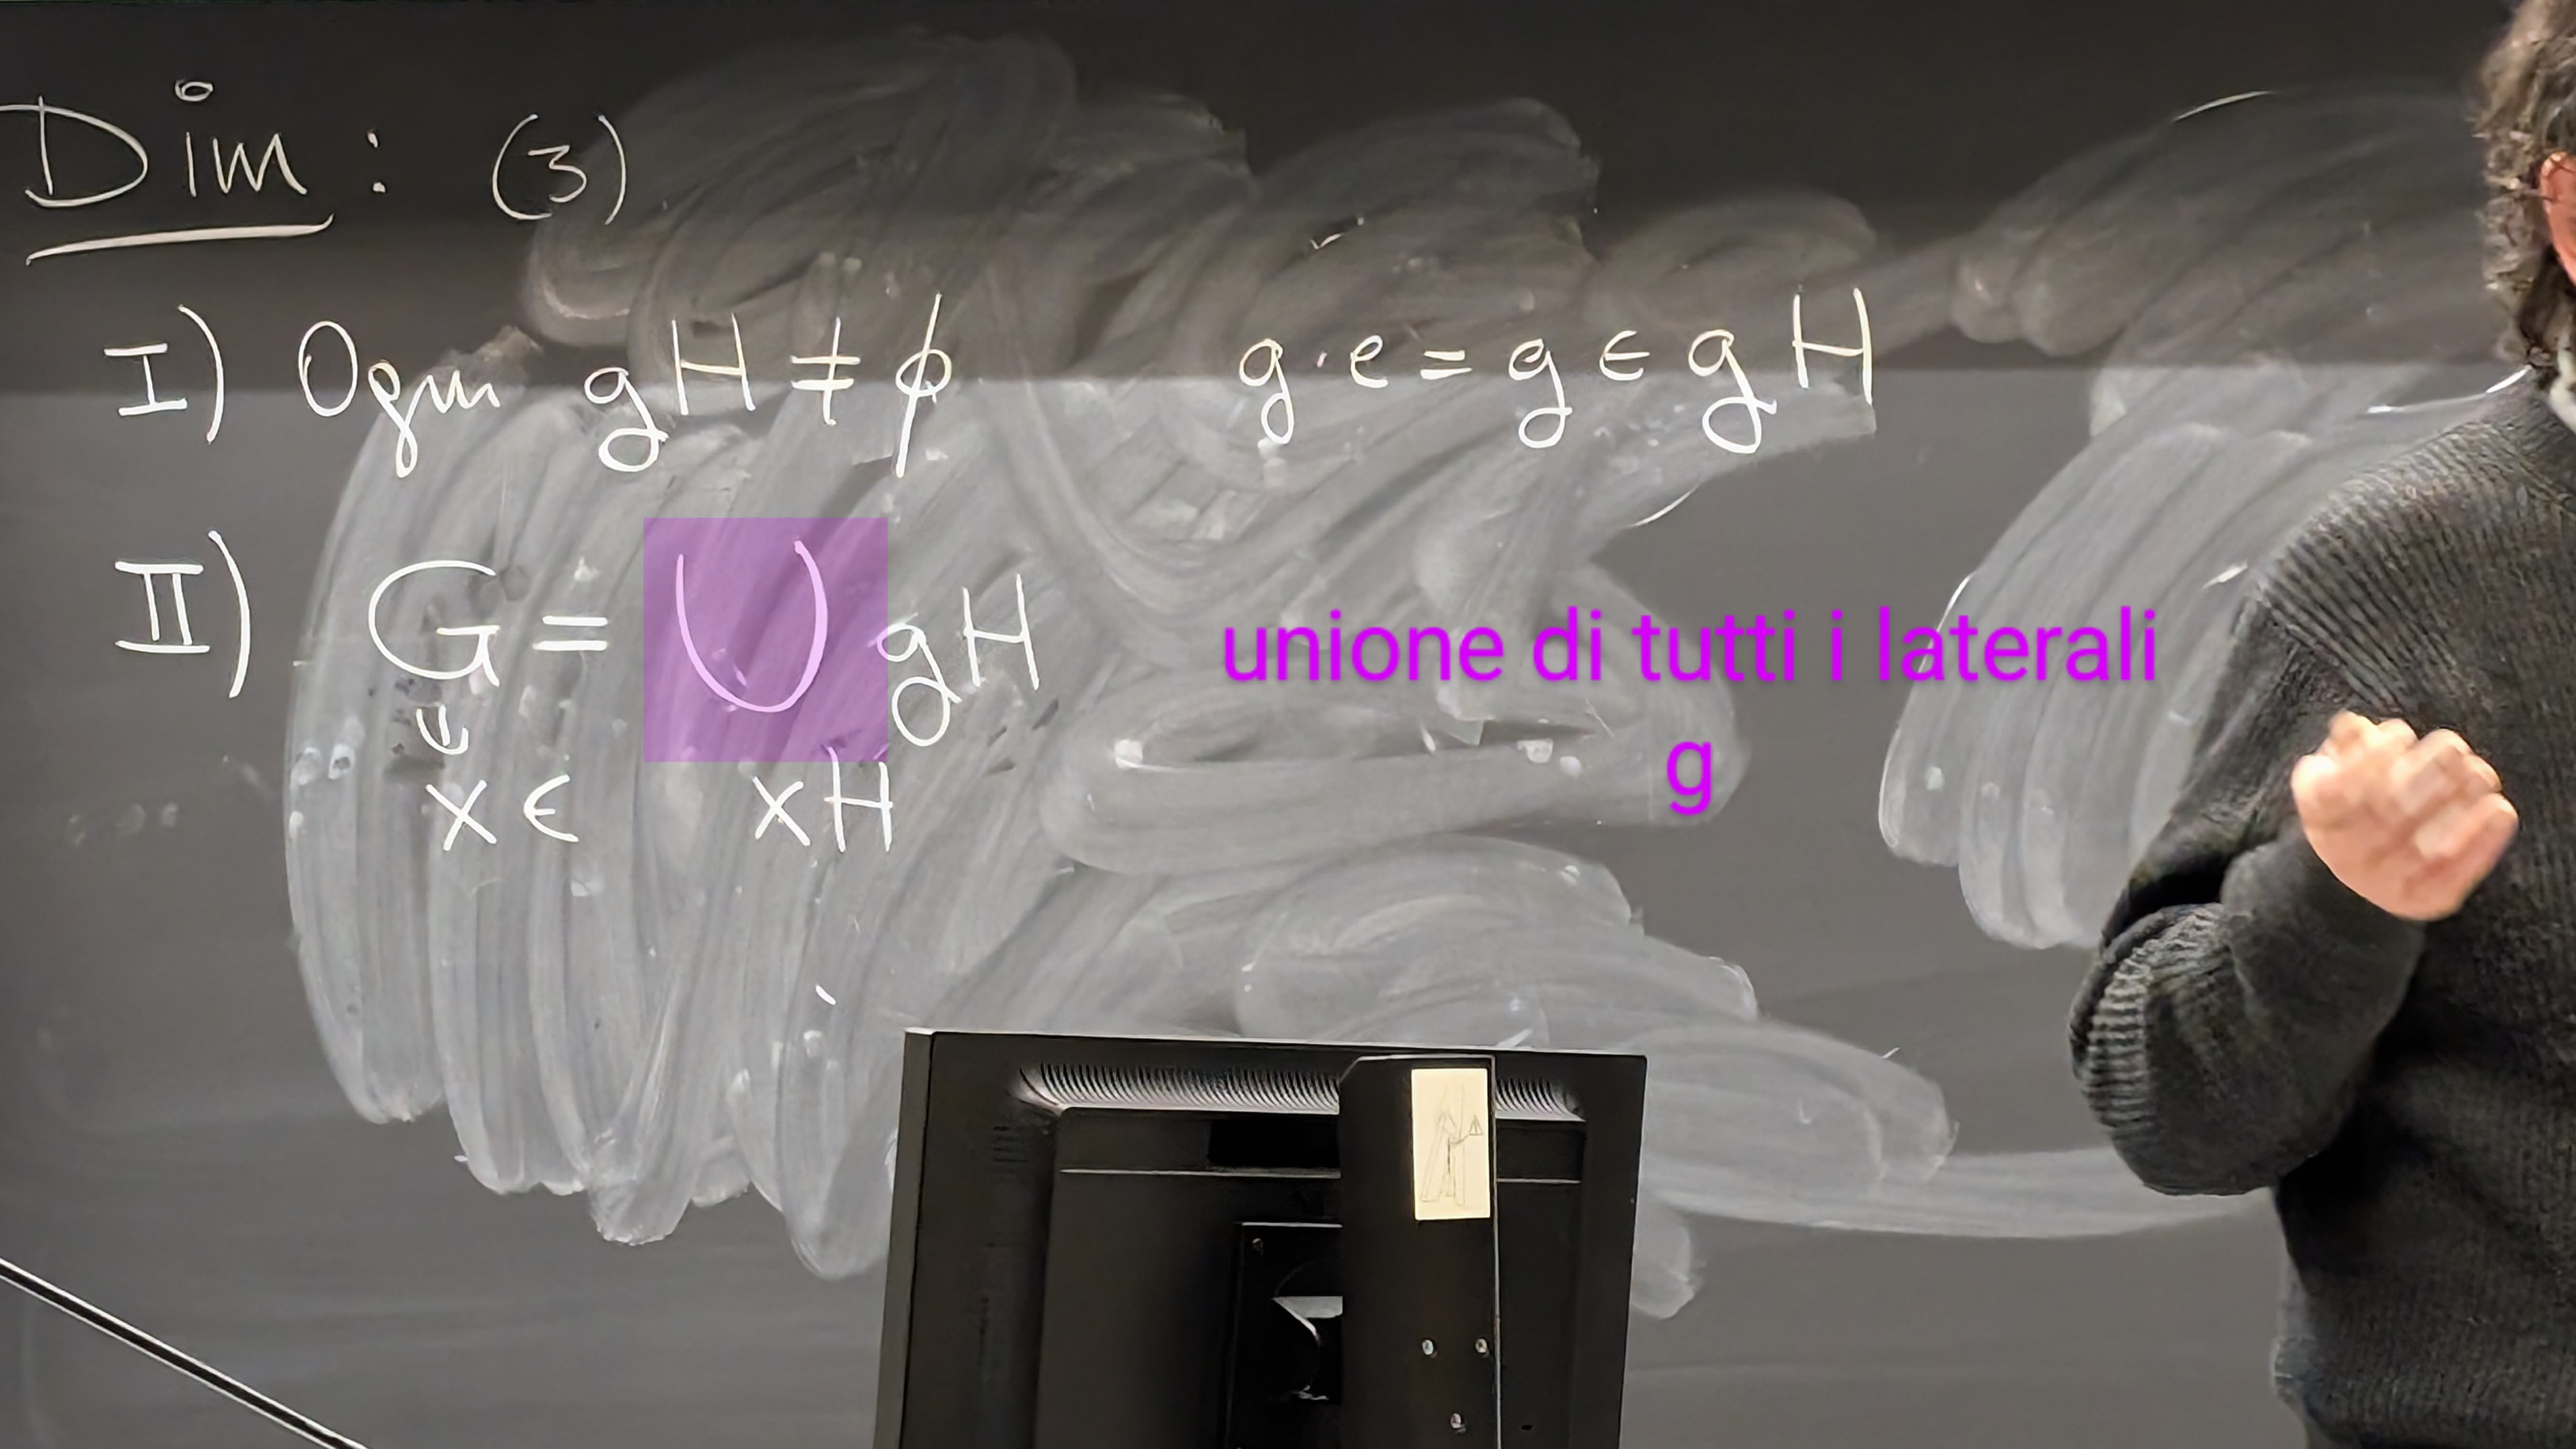 Dim : (3)
I) Ogni gH ≠ ϕ g·e = g ∈ gH
II) G = ∪ gH
x ∈ xH
unione di tutti i laterali
g